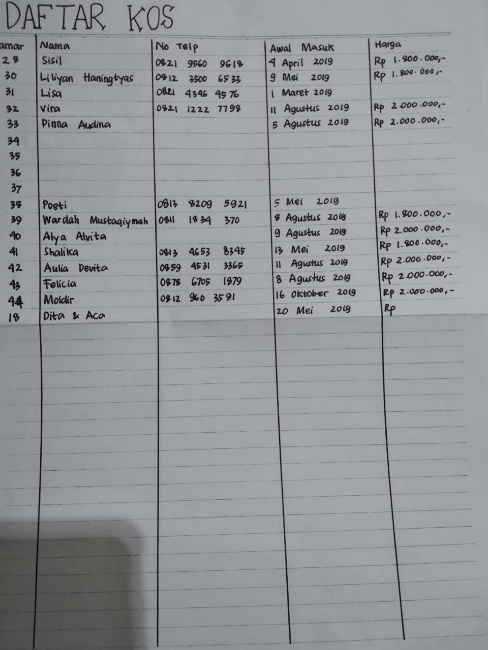 DAFTAR KOS
amar Nama No Telp Awal Masuk Harga
28 Sisil 0821 9560 9618 4 April 2019 Rp 1.800.000,-
30 Liliyan Haningtyas 0812 3500 6533 9 Mei 2019 Rp 1.800.000,-
31 Lisa 0821 4546 4576 1 Maret 2019
32 Vira 0821 1222 7798 11 Agustus 2019 Rp 2.000.000,-
33 Pinna Audina 5 Agustus 2019 Rp 2.000.000,-
34
35
36
37
38 Poeti 0813 8209 5921 5 Mei 2019
39 Wardah Mustaqiymah 0811 1834 370 8 Agustus 2019 Rp 1.800.000,-
40 Alya Alvita 9 Agustus 2019 Rp 2.000.000,-
41 Shalika 0813 4653 8345 13 Mei 2019 Rp 1.800.000,-
42 Aulia Devita 0859 4531 3365 11 Agustus 2019 Rp 2.000.000,-
43 Felicia 0878 6705 1879 8 Agustus 2019 Rp 2.000.000,-
44 Moldir 0812 960 3591 16 Oktober 2019 Rp 2.000.000,-
18 Dita & Aca 20 Mei 2019 Rp